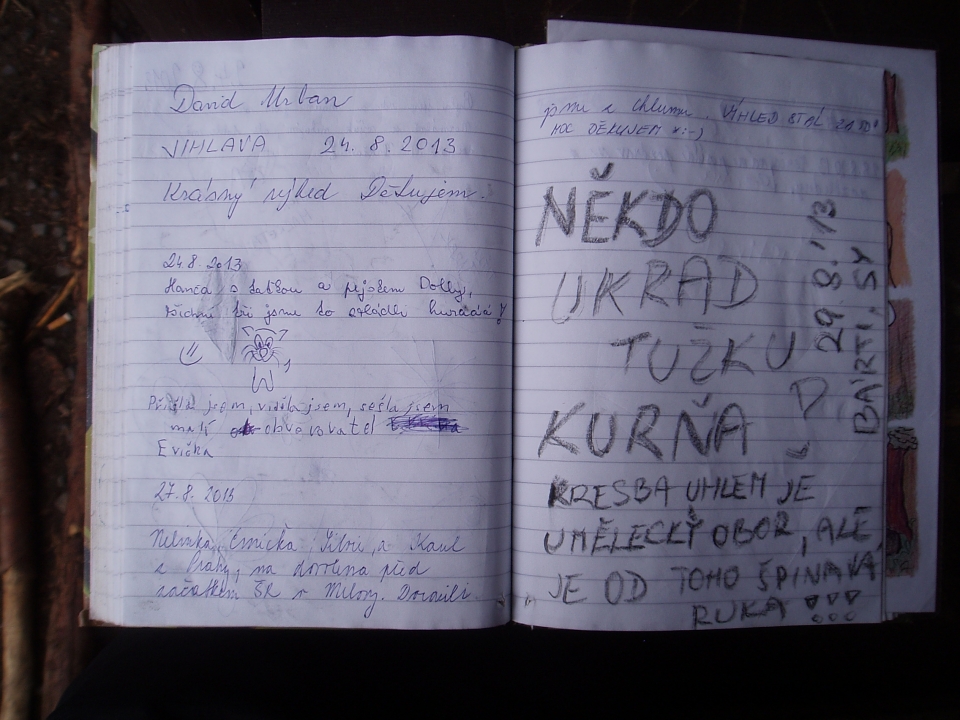 David Urban
JIHLAVA 24. 8. 2013
Krásný výhled Děkujem.
24.8.2013
Hanča s taťkou a pejskem Dolly,
všichni tři jsme to zvládli hurááá!
Přišla jsem, viděla jsem, sešla jsem
malí obvěvovatel
Evička
27.8. 2013
Nelinka, Emička, a Karel
z Prahy, na dovolené před
začátkem ŠR v
jsme z Chlumu. VÝHLED STÁL ZA TO!
MOC DĚKUJEM *:-)
NĚKDO
UKRAD
TUŽKU
KURŇA
KRESBA UHLEM JE
UMĚLECKÝ OBOR, ALE
JE OD TOHO ŠPINAVÁ
RUKA !!!
29.8.'13
BÁRTI, SY